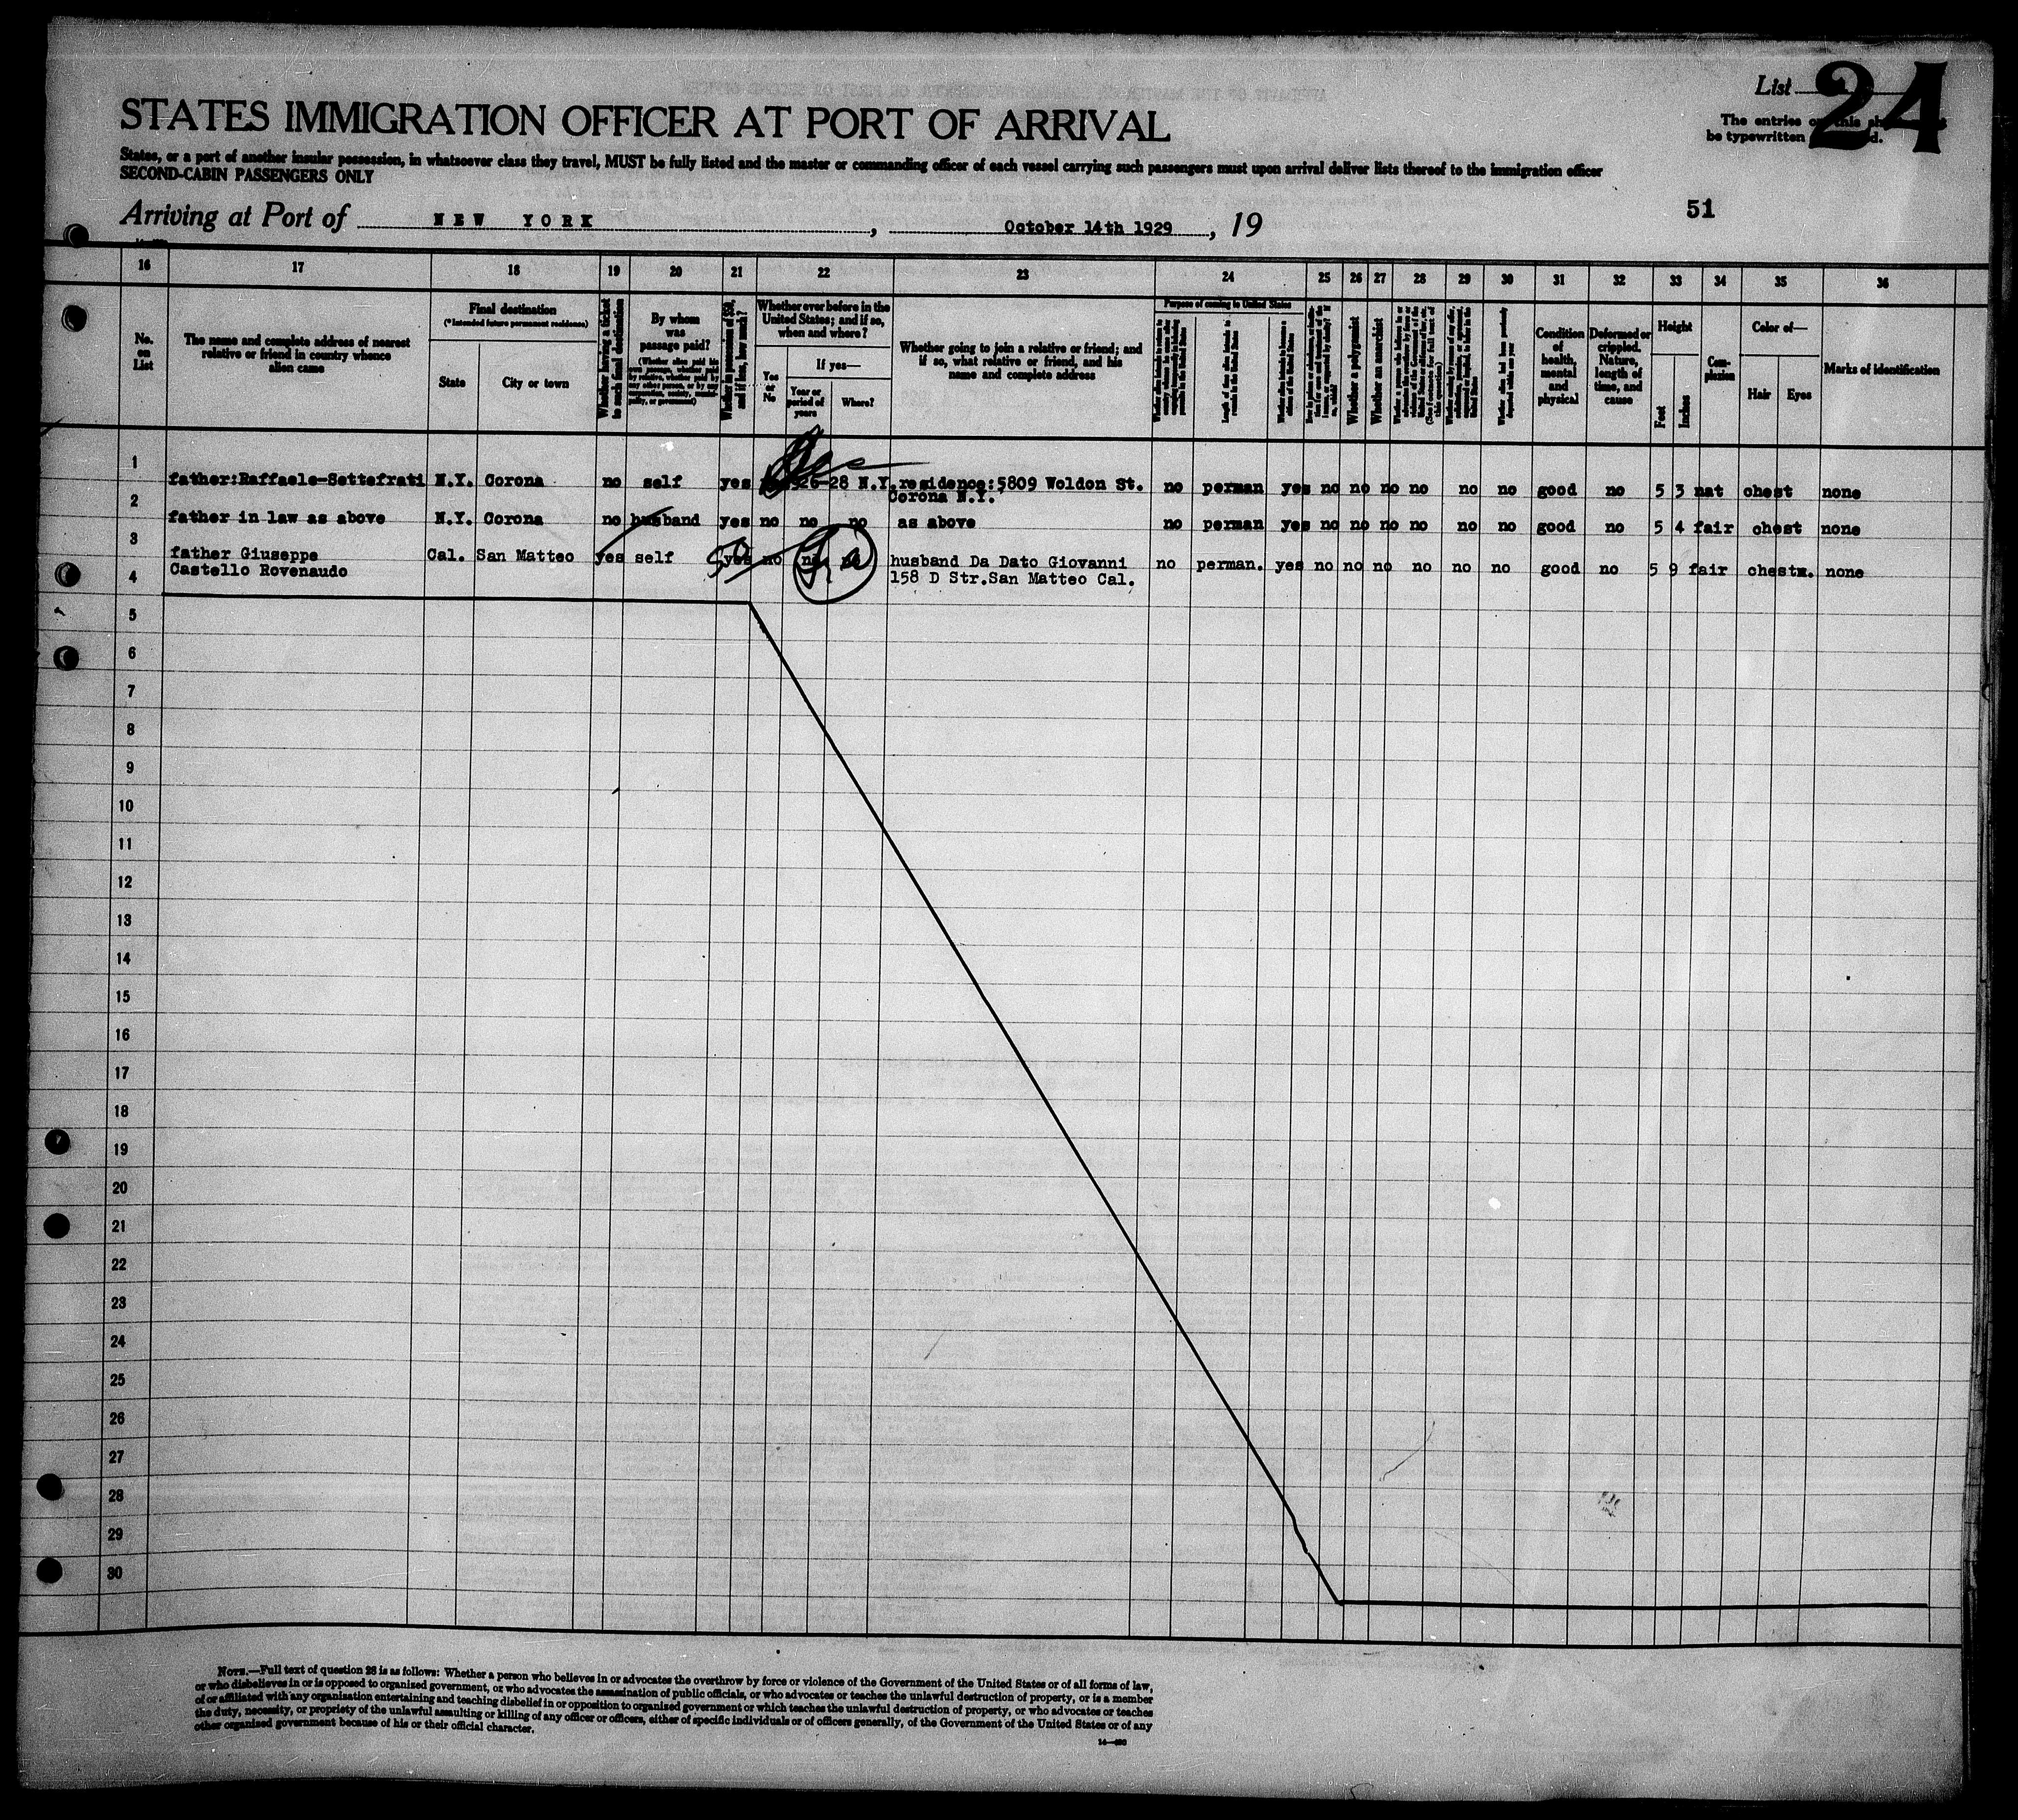 List 24
STATES IMMIGRATION OFFICER AT PORT OF ARRIVAL
The entries on this
be typewritten
States, or a port of another insular possession, in whatsoever class they travel, MUST be fully listed and the master or commanding officer of each vessel carrying such passengers must upon arrival deliver lists thereof to the immigration officer
SECOND-CABIN PASSENGERS ONLY
51
Arriving at Port of NEW YORK, October 14th 1929, 19
16 17 18 19 20 21 22 23 24 25 26 27 28 29 30 31 32 33 34 35 36
No. on List
The name and complete address of nearest relative or friend in country whence alien came
Final destination
(*Intended future permanent residence)
State
City or town
Whether having a ticket to such final destination
By whom was passage paid?
Whether in possession of $50, and if less, how much?
Whether ever before in the United States; and if so, when and where?
Yes or No
If yes—
Year or period of years
Where?
Whether going to join a relative or friend; and if so, what relative or friend, and his name and complete address
Purpose of coming to United States
Length of time alien intends to remain in the United States
Whether a polygamist
Whether an anarchist
Condition of health, mental and physical
Deformed or crippled. Nature, length of time, and cause
Height
Feet
Inches
Complexion
Color of—
Hair
Eyes
Marks of identification
1
father:Raffaele-Settefrati N.Y. Corona no self yes 26-28 N.Y. residence:5809 Woldon St. no perman yes no no no no no no good no 5 3 nat chest none
Corona N.Y.
2
father in law as above N.Y. Corona no husband yes no no no as above no perman yes no no no no no no good no 5 4 fair chest none
3
father Giuseppe Cal. San Matteo yes self 50 yes no no no husband Da Dato Giovanni no perman. yes no no no no no no good no 5 9 fair chestn. none
Castello Rovenaudo 158 D Str.San Matteo Cal.
4
5
6
7
8
9
10
11
12
13
14
15
16
17
18
19
20
21
22
23
24
25
26
27
28
29
30
NOTE.—Full text of question 28 is as follows: Whether a person who believes in or advocates the overthrow by force or violence of the Government of the United States or of all forms of law,
or who disbelieves in or is opposed to organized government, or who advocates the assassination of public officials, or who advocates or teaches the unlawful destruction of property, or is a member
of or affiliated with any organization entertaining and teaching disbelief in or opposition to organized government or which teaches the unlawful destruction of property, or who advocates or teaches
the duty, necessity, or propriety of the unlawful assaulting or killing of any officer or officers, either of specific individuals or of officers generally, of the Government of the United States or of any
other organized government because of his or their official character.